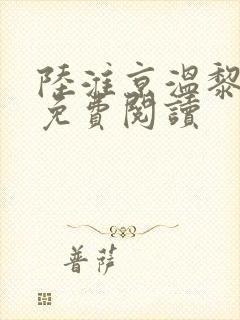 陸淮京溫黎
免費閱讀
普薩